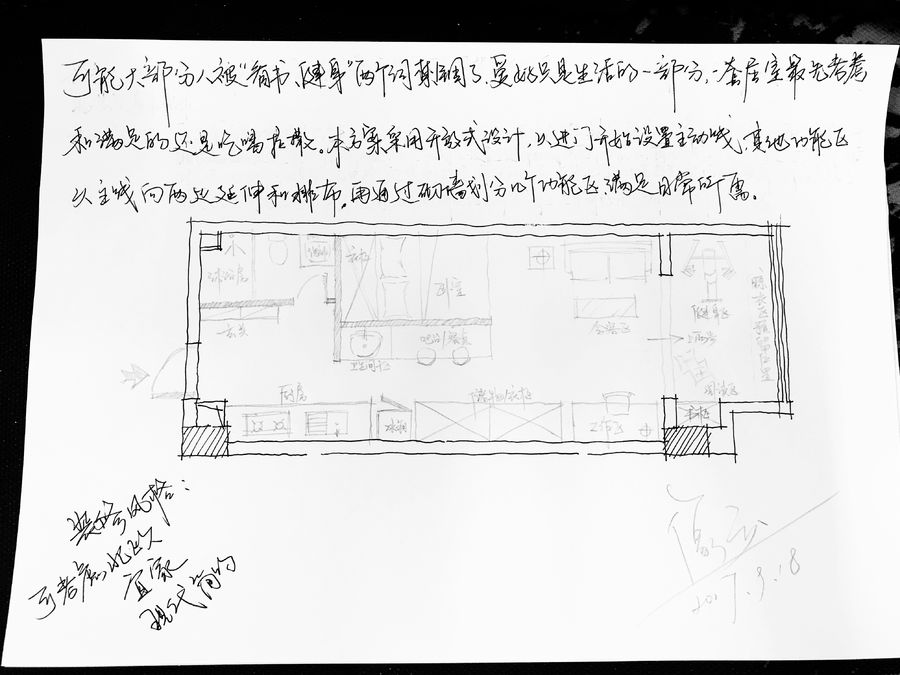 可能大部分人被“看书、健身”两个词禁锢了、其他只是生活的一部分,一套居室最先考虑
和满足的还是吃喝拉撒。本方案采用开放式设计,以进门开始设置主动线,其他功能区
以主线向两边延伸和排布,再通过隔墙划分几个功能区满足日常所需。
衣柜
淋浴房
卧室
玄关
健身区
会客区
吧台/餐桌
卫生间干区
上阳台
晾衣区预留位置
阅读区
厨房
储物/衣柜
冰箱
工作区
书柜
装修风格:
可考虑北欧
宜家
现代简约
2017.9.18